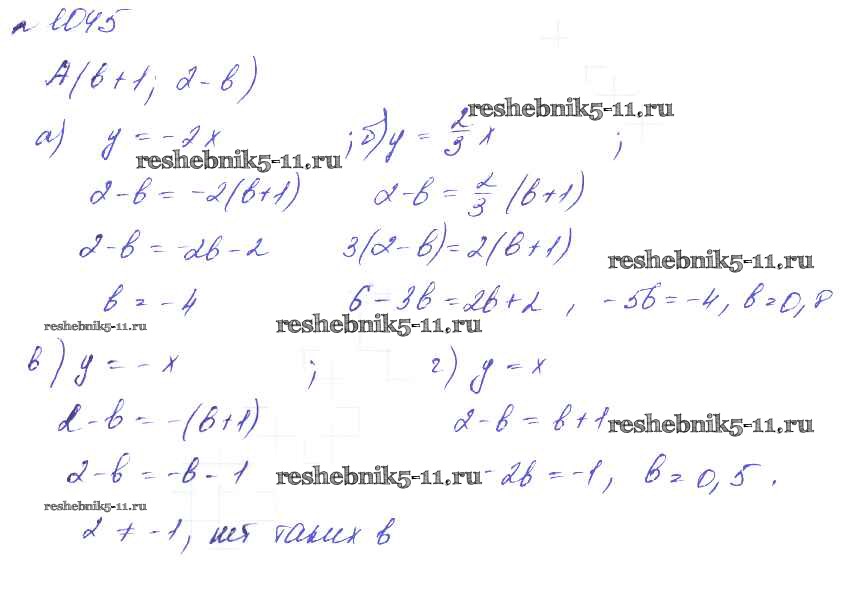 № 1045
A(в+1; 2-в)
reshebnik5-11.ru
а) y = -2x ; б) y = 2/3 x ;
reshebnik5-11.ru
2-в = -2(в+1) 2-в = 2/3 (в+1)
2-в = -2в-2 3(2-в)=2(в+1)
reshebnik5-11.ru
в = -4 6-3в=2в+2, -5в=-4, в=0,8
reshebnik5-11.ru reshebnik5-11.ru
в) y = -x ; г) y = x
2-в = -(в+1) 2-в = в+1 reshebnik5-11.ru
2-в = -в-1 reshebnik5-11.ru -2в=-1, в=0,5.
reshebnik5-11.ru
2 ≠ -1, нет таких в